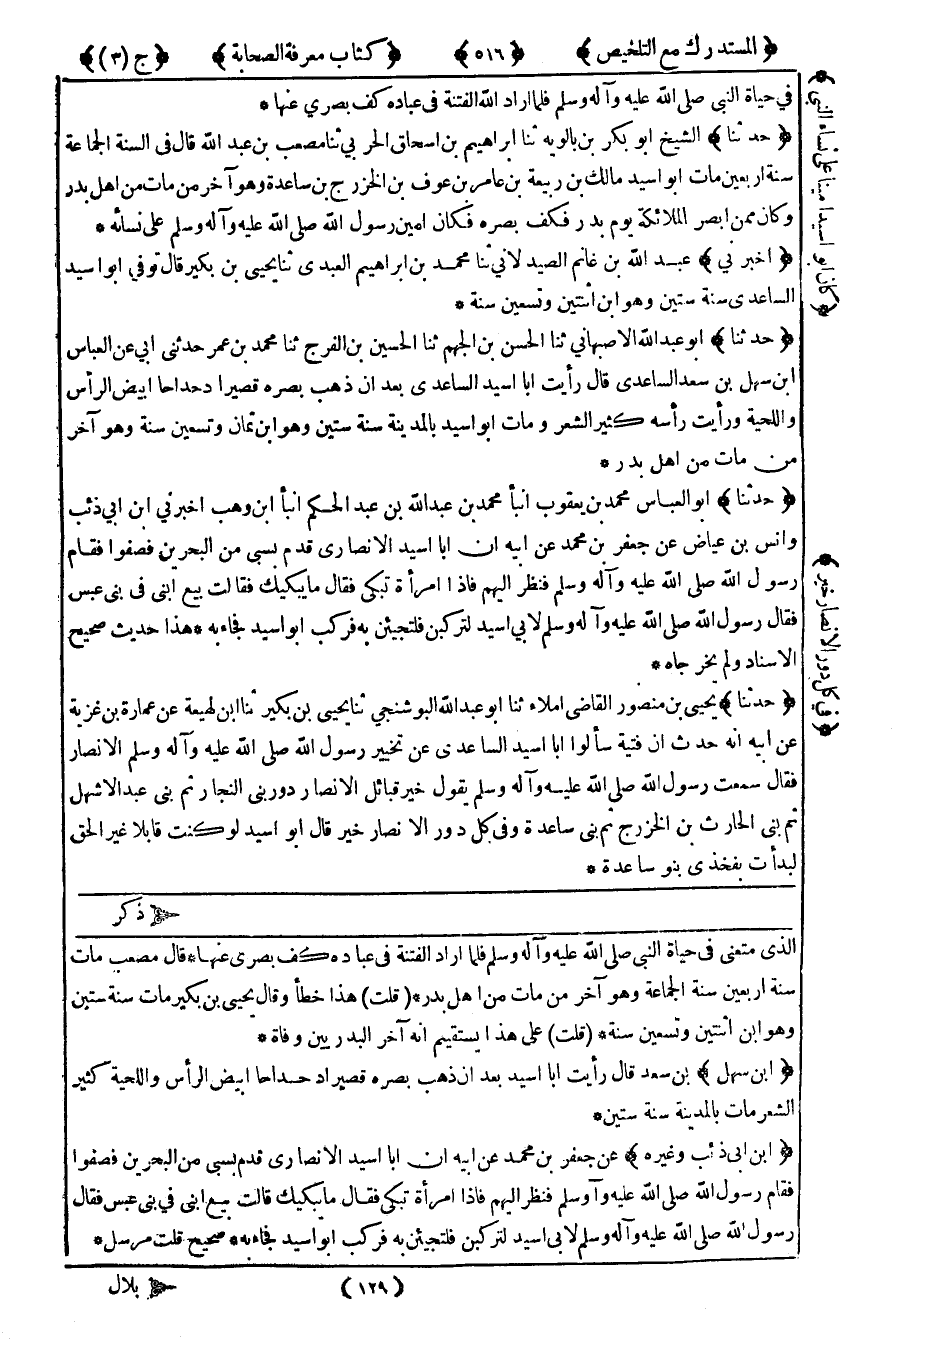 ﴿ المستدرك مع التلخيص ﴾ ﴿ ٥١٦ ﴾ ﴿ كتاب معرفة الصحابة ﴾ ﴿ ج (٣) ﴾
في حياة النبي صلى الله عليه وآله وسلم فلما اراد الله الفتنة فى عباده كف بصري عنها *
﴿ حدثنا ﴾ الشيخ ابو بكر بن بالويه ثنا ابراهيم بن اسحاق الحربي ثنا مصعب بن عبد الله قال فى السنة الجماعة
سنة اربعين مات ابو اسيد مالك بن ربيعة بن عامر بن عوف بن الخزرج بن ساعدة وهو آخر من مات من اهل بدر
وكان ممن ابصر الملائكة يوم بدر فكف بصره فكان امين رسول الله صلى الله عليه وآله وسلم على نسائه *
﴿ اخبرني ﴾ عبد الله بن غانم الصيدلاني ثنا محمد بن ابراهيم العبدى ثنا يحيى بن بكير قال توفي ابو اسيد
الساعدى سنة ستين وهو ابن اثنتين وتسعين سنة *
﴿ حدثنا ﴾ ابو عبد الله الاصبهاني ثنا الحسن بن الجهم ثنا الحسين بن الفرج ثنا محمد بن عمر حدثنى ابي عن العباس
ابن سهل بن سعد الساعدى قال رأيت ابا اسيد الساعدى بعد ان ذهب بصره قصيرا دحداحا ابيض الرأس
واللحية ورأيت رأسه كثير الشعر ومات ابو اسيد بالمدينة سنة ستين وهو ابن ثمان وتسعين سنة وهو آخر
من مات من اهل بدر *
﴿ حدثنا ﴾ ابو العباس محمد بن يعقوب انبأ محمد بن عبد الله بن عبد الحكم انبأ ابن وهب اخبرني ابن ابي ذئب
وانس بن عياض عن جعفر بن محمد عن ابيه ان ابا اسيد الانصارى قدم بسبى من البحرين فصفوا فقام
رسول الله صلى الله عليه وآله وسلم فنظر اليهم فاذا امرأة تبكى فقال ما يبكيك فقالت بيع ابنى فى بنى عبس
فقال رسول الله صلى الله عليه وآله وسلم لابي اسيد لتركبن فلتجيئن به فركب ابو اسيد فجاء به *هذا حديث صحيح
الاسناد ولم يخرجاه *
﴿ حدثنا ﴾ يحيى بن منصور القاضى املاء ثنا ابو عبد الله البوشنجي ثنا يحيى بن بكير ثنا ابن لهيعة عن عمارة بن غزية
عن ابيه انه حدث ان فتية سألوا ابا اسيد الساعدى عن تخيير رسول الله صلى الله عليه وآله وسلم الانصار
فقال سمعت رسول الله صلى الله عليه وآله وسلم يقول خير قبائل الانصار دور بنى النجار ثم بنى عبد الاشهل
ثم بنى الحارث بن الخزرج ثم بنى ساعدة وفى كل دور الانصار خير قال ابو اسيد لو كنت قابلا غير الحق
لبدأت بفخذى بنو ساعدة *
ذكر
الذى متعنى فى حياة النبى صلى الله عليه وآله وسلم فلما اراد الفتنة فى عباده كف بصرى عنها*قال مصعب مات
سنة اربعين سنة الجماعة وهو آخر من مات من اهل بدر*(قلت) هذا خطأ وقال يحيى بن بكير مات سنة ستين
وهو ابن اثنتين وتسعين سنة* (قلت) على هذا يستقيم انه آخر البدريين وفاة *
﴿ ابن سهل ﴾ بن سعد قال رأيت ابا اسيد بعد ان ذهب بصره قصيرا دحداحا ابيض الرأس واللحية كثير
الشعر مات بالمدينة سنة ستين*
﴿ ابن ابى ذئب وغيره ﴾ عن جعفر بن محمد عن ابيه ان ابا اسيد الانصارى قدم بسبى من البحرين فصفوا
فقام رسول الله صلى الله عليه وآله وسلم فنظر اليهم فاذا امرأة تبكى فقال ما يبكيك قالت بيع ابنى في بنى عبس فقال
رسول الله صلى الله عليه وآله وسلم لابى اسيد لتركبن فلتجيئن به فركب ابو اسيد فجاء به* صحيح قلت مرسل*
(١٢٩)
بلال
﴿ كان ابو اسيد امينا على نساء النبي ﴾
﴿ في كل دور الانصار خير ﴾